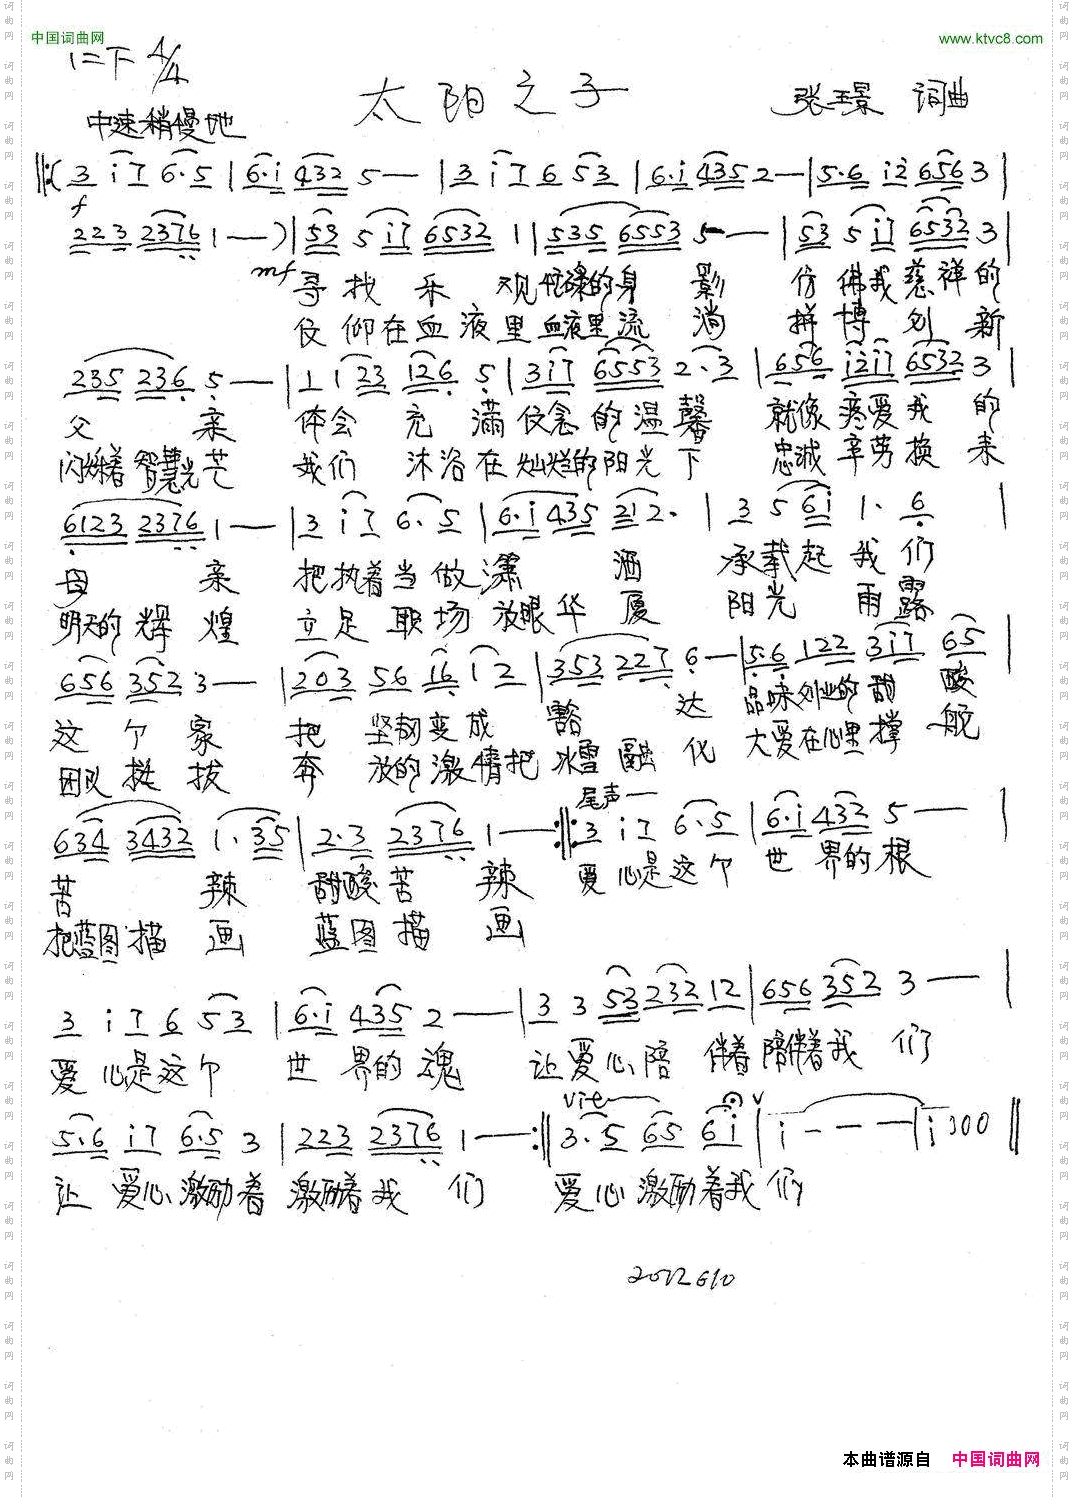 中国词曲网 www.ktvc8.com
1=F 4/4
太阳之子 张玉景 词曲
中速稍慢地
‖:( 3 i 7 6·5 | 6·i 432 5 — | 3 i 7 6 53 | 6·i 435 2 — | 5·6 i2 656 3 |
f
223 2376 1 — ) | 53 5 i7 6532 1 | 535 6553 5 — | 53 5 i7 6532 3 |
mf
寻找乐观忙碌的身影 仿佛我慈祥的
仅仰在血液里血液里流淌 拼博创新
235 236 5 — | 1 1 23 126 5 | 3i7 6553 2·3 | 656 i2i7 6532 3 |
父亲 体会充满仪念的温馨 就像疼爱我的
闪烁着智慧光芒 我们沐浴在灿烂的阳光下 忠诚辛劳换来
6123 2376 1 — | 3 i 7 6·5 | 6·i 435 212· | 3 5 6i 1·6 |
母亲 把执着当做潇洒 承载起我们
明天的辉煌 立足职场放眼华厦 阳光雨露
656 352 3 — | 203 56 16 1 2 | 353 227 6 — | 5·6 122 3i7 65 |
这个家 把坚韧变成豁达 品味创业的甜酸
团队挺拔 奔放的激情把冰雪融化 大爱在心里撑航
尾声—
634 3432 1·35 | 2·3 2376 1 — :‖: 3 i 7 6·5 | 6·i 432 5 — |
苦辣 甜酸苦辣 爱心是这个世界的根
把蓝图描画 蓝图描画
3 i 7 6 53 | 6·i 435 2 — | 3 3 53 232 12 | 656 352 3 — |
爱心是这个世界的魂 让爱心陪伴着陪伴着我们
vit—
5·6 i7 6·5 3 | 223 2376 1 — :‖ 3·5 65 6i | i — — — | i 300 ‖
让爱心激励着激励着我们 爱心激励着我们
2012 610
本曲谱源自 中国词曲网